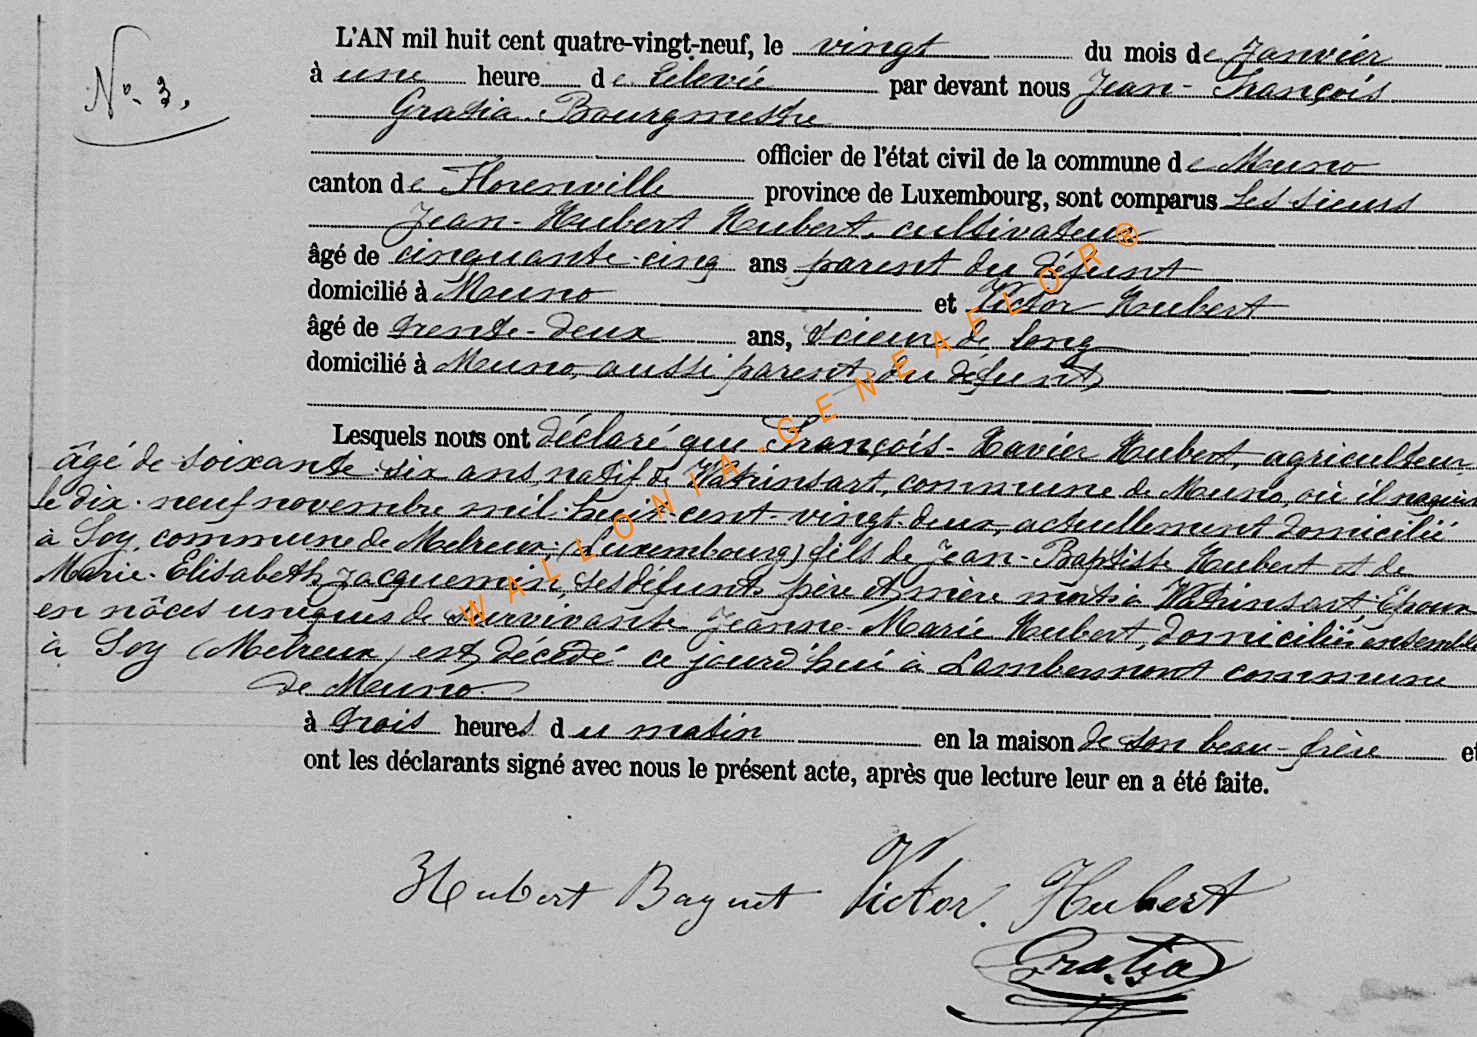 N° 3.
L'AN mil huit cent quatre-vingt-neuf, le vingt du mois de Janvier
à une heure de relevée par devant nous Jean-François
Gratia Bourgmestre
officier de l'état civil de la commune de Muno
canton de Florenville province de Luxembourg, sont comparus Les sieurs
Jean-Hubert Hubert, cultivateur
âgé de cinquante-cinq ans parent du défunt
domicilié à Muno et Victor Hubert
âgé de trente-deux ans, scieur de long
domicilié à Muno, aussi parent du défunt
Lesquels nous ont déclaré que François-Xavier Hubert, agriculteur
âgé de soixante-six ans, natif de Watrinsart, commune de Muno, où il naquit
le dix-neuf novembre mil-huit-cent-vingt-deux, actuellement domicilié
à Soy, commune de Melreux, (Luxembourg) fils de Jean Baptiste Hubert et de
Marie-Elisabeth Jacquemin, ses défunts père et mère morts à Watrinsart; Epoux
en nôces uniques de survivante Jeanne-Marie Hubert, domiciliés ensemble
à Soy (Melreux) est décédé ce jourd'hui à Lambermont commune
de Muno
à trois heures du matin en la maison de son beau-frère et
ont les déclarants signé avec nous le présent acte, après que lecture leur en a été faite.
Hubert Victor Hubert
Gratia
WALLONIA.GENEAFLOR®